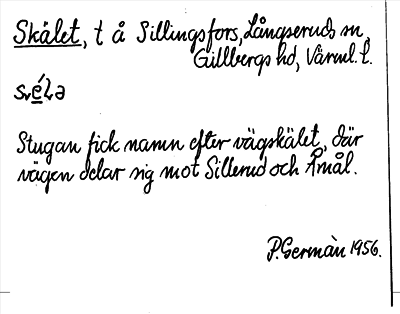 Skälet, t å Sillingsfors, Långseruds sn,
Gillbergs hd, Värml. l.
Stugan fick namn efter vägskälet, där
vägen delar sig mot Sillerud och Åmål.
P. Germàn 1956.